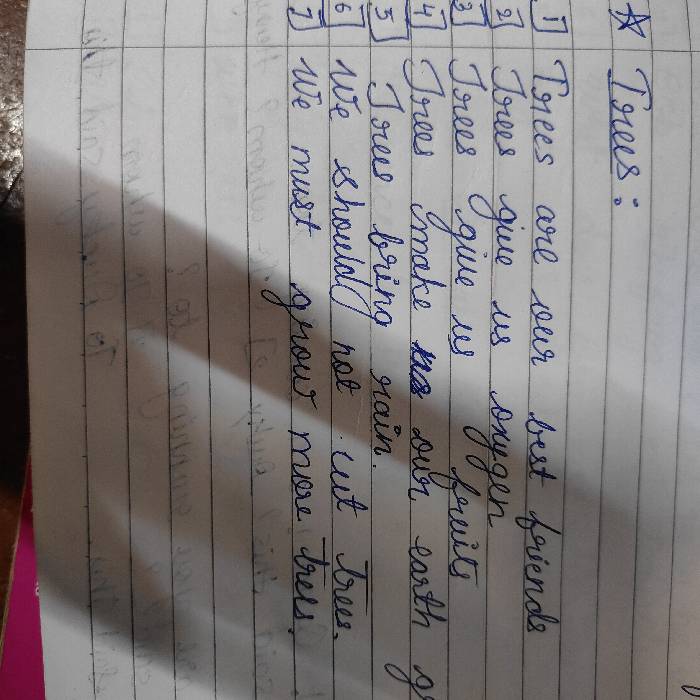 ☆ Trees:
1] Trees are our best friends
2] Trees give us oxygen
3] Trees give us fruits
4] Trees make our earth
5] Trees bring rain.
6] We should not cut trees.
7] We must grow more trees.